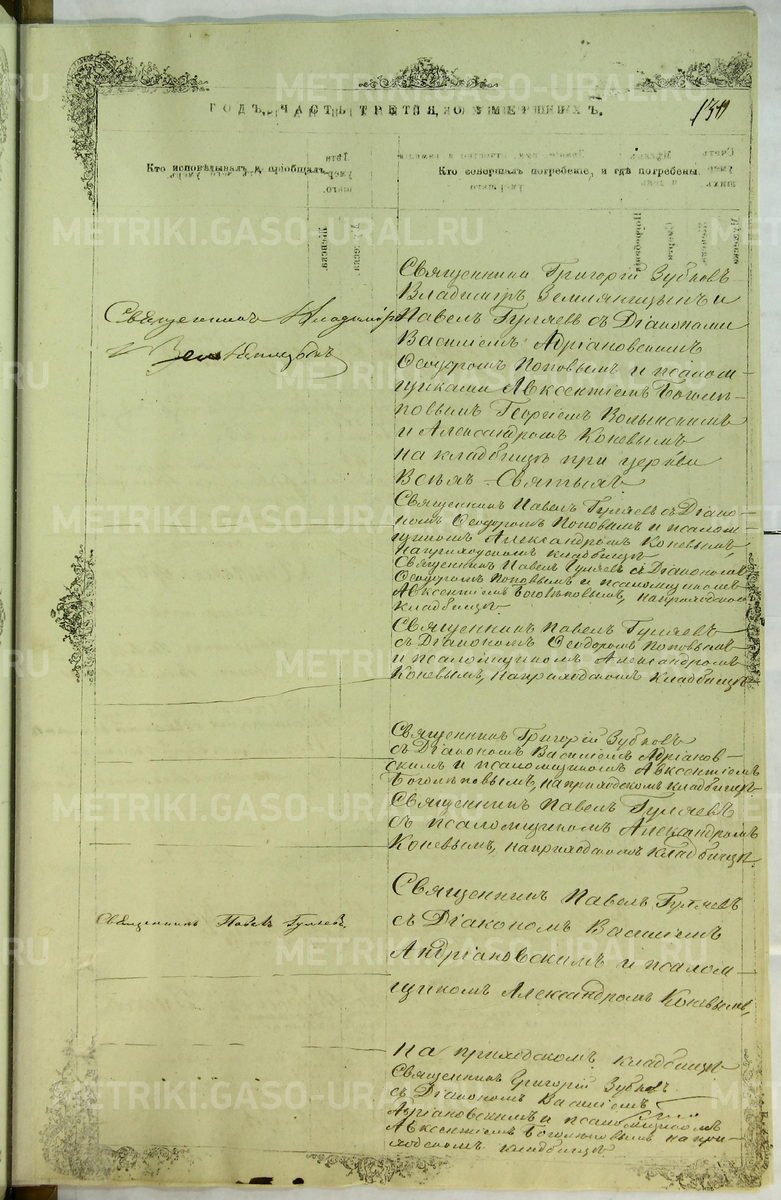 ГОДЪ, ЧАСТЬ ТРЕТІЯ, О УМЕРШИХЪ.
Кто исповѣдывалъ и пріобщалъ.
Кто совершалъ погребеніе, и гдѣ погребены.
Священникъ Владиміръ
Земляницынъ
Священники Григорій Зубковъ
Владиміръ Земляницынъ и
Павелъ Гуляевъ съ Діаконами
Василіемъ Адріановскимъ
Ѳеодоромъ Поповымъ и псалом-
щиками Авксентіемъ Боголѣ-
повымъ Георгіемъ Волынскимъ
и Александромъ Коневымъ
на кладбищѣ при церкви
Всѣхъ-Святыхъ
Священникъ Павелъ Гуляевъ съ Діако-
номъ Ѳеодоромъ Поповымъ и псалом-
щикомъ Александромъ Коневымъ
на приходскомъ кладбищѣ
Священникъ Павелъ Гуляевъ съ Діакономъ
Ѳеодоромъ Поповымъ и псаломщикомъ
Авксентіемъ Боголѣповымъ, на приходскомъ
кладбищѣ.
Священникъ Павелъ Гуляевъ
съ Діакономъ Ѳеодоромъ Поповымъ
и псаломщикомъ Александромъ
Коневымъ, на приходскомъ кладбищѣ
Священникъ Григорій Зубковъ
съ Діакономъ Василіемъ Адріанов-
скимъ и псаломщикомъ Авксентіемъ
Боголѣповымъ, на приходскомъ кладбищѣ
Священникъ Павелъ Гуляевъ
съ псаломщикомъ Александромъ
Коневымъ, на приходскомъ кладбищѣ.
Священникъ Павелъ Гуляевъ.
Священникъ Павелъ Гуляевъ
съ Діакономъ Василіемъ
Андріановскимъ и псалом-
щикомъ Александромъ Коневымъ,
на приходскомъ кладбищѣ
Священникъ Григорій Зубковъ
съ Діакономъ Василіемъ
Адріановскимъ и псаломщикомъ
Авксентіемъ Боголѣповымъ на при-
ходскомъ кладбищѣ
METRIKI.GASO-URAL.RU